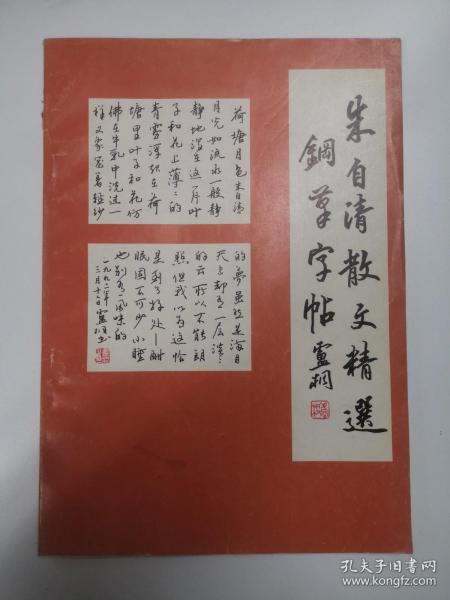 朱自清散文精選
鋼草字帖 盧桐
荷塘月色朱自清
月光如流水一般静
静地泻在这一片叶
子和花上薄〻的
青雾浮起在荷
塘里叶子和花仿
佛在牛乳中洗过一
样又象笼着轻纱
的梦虽然是满月
天上却有一层淡〻
的云所以不能朗
照但我以为这恰
是到了好处—酣
眠固不可少小睡
也别有风味的
一九九二年
三月十二日
孔夫子旧书网